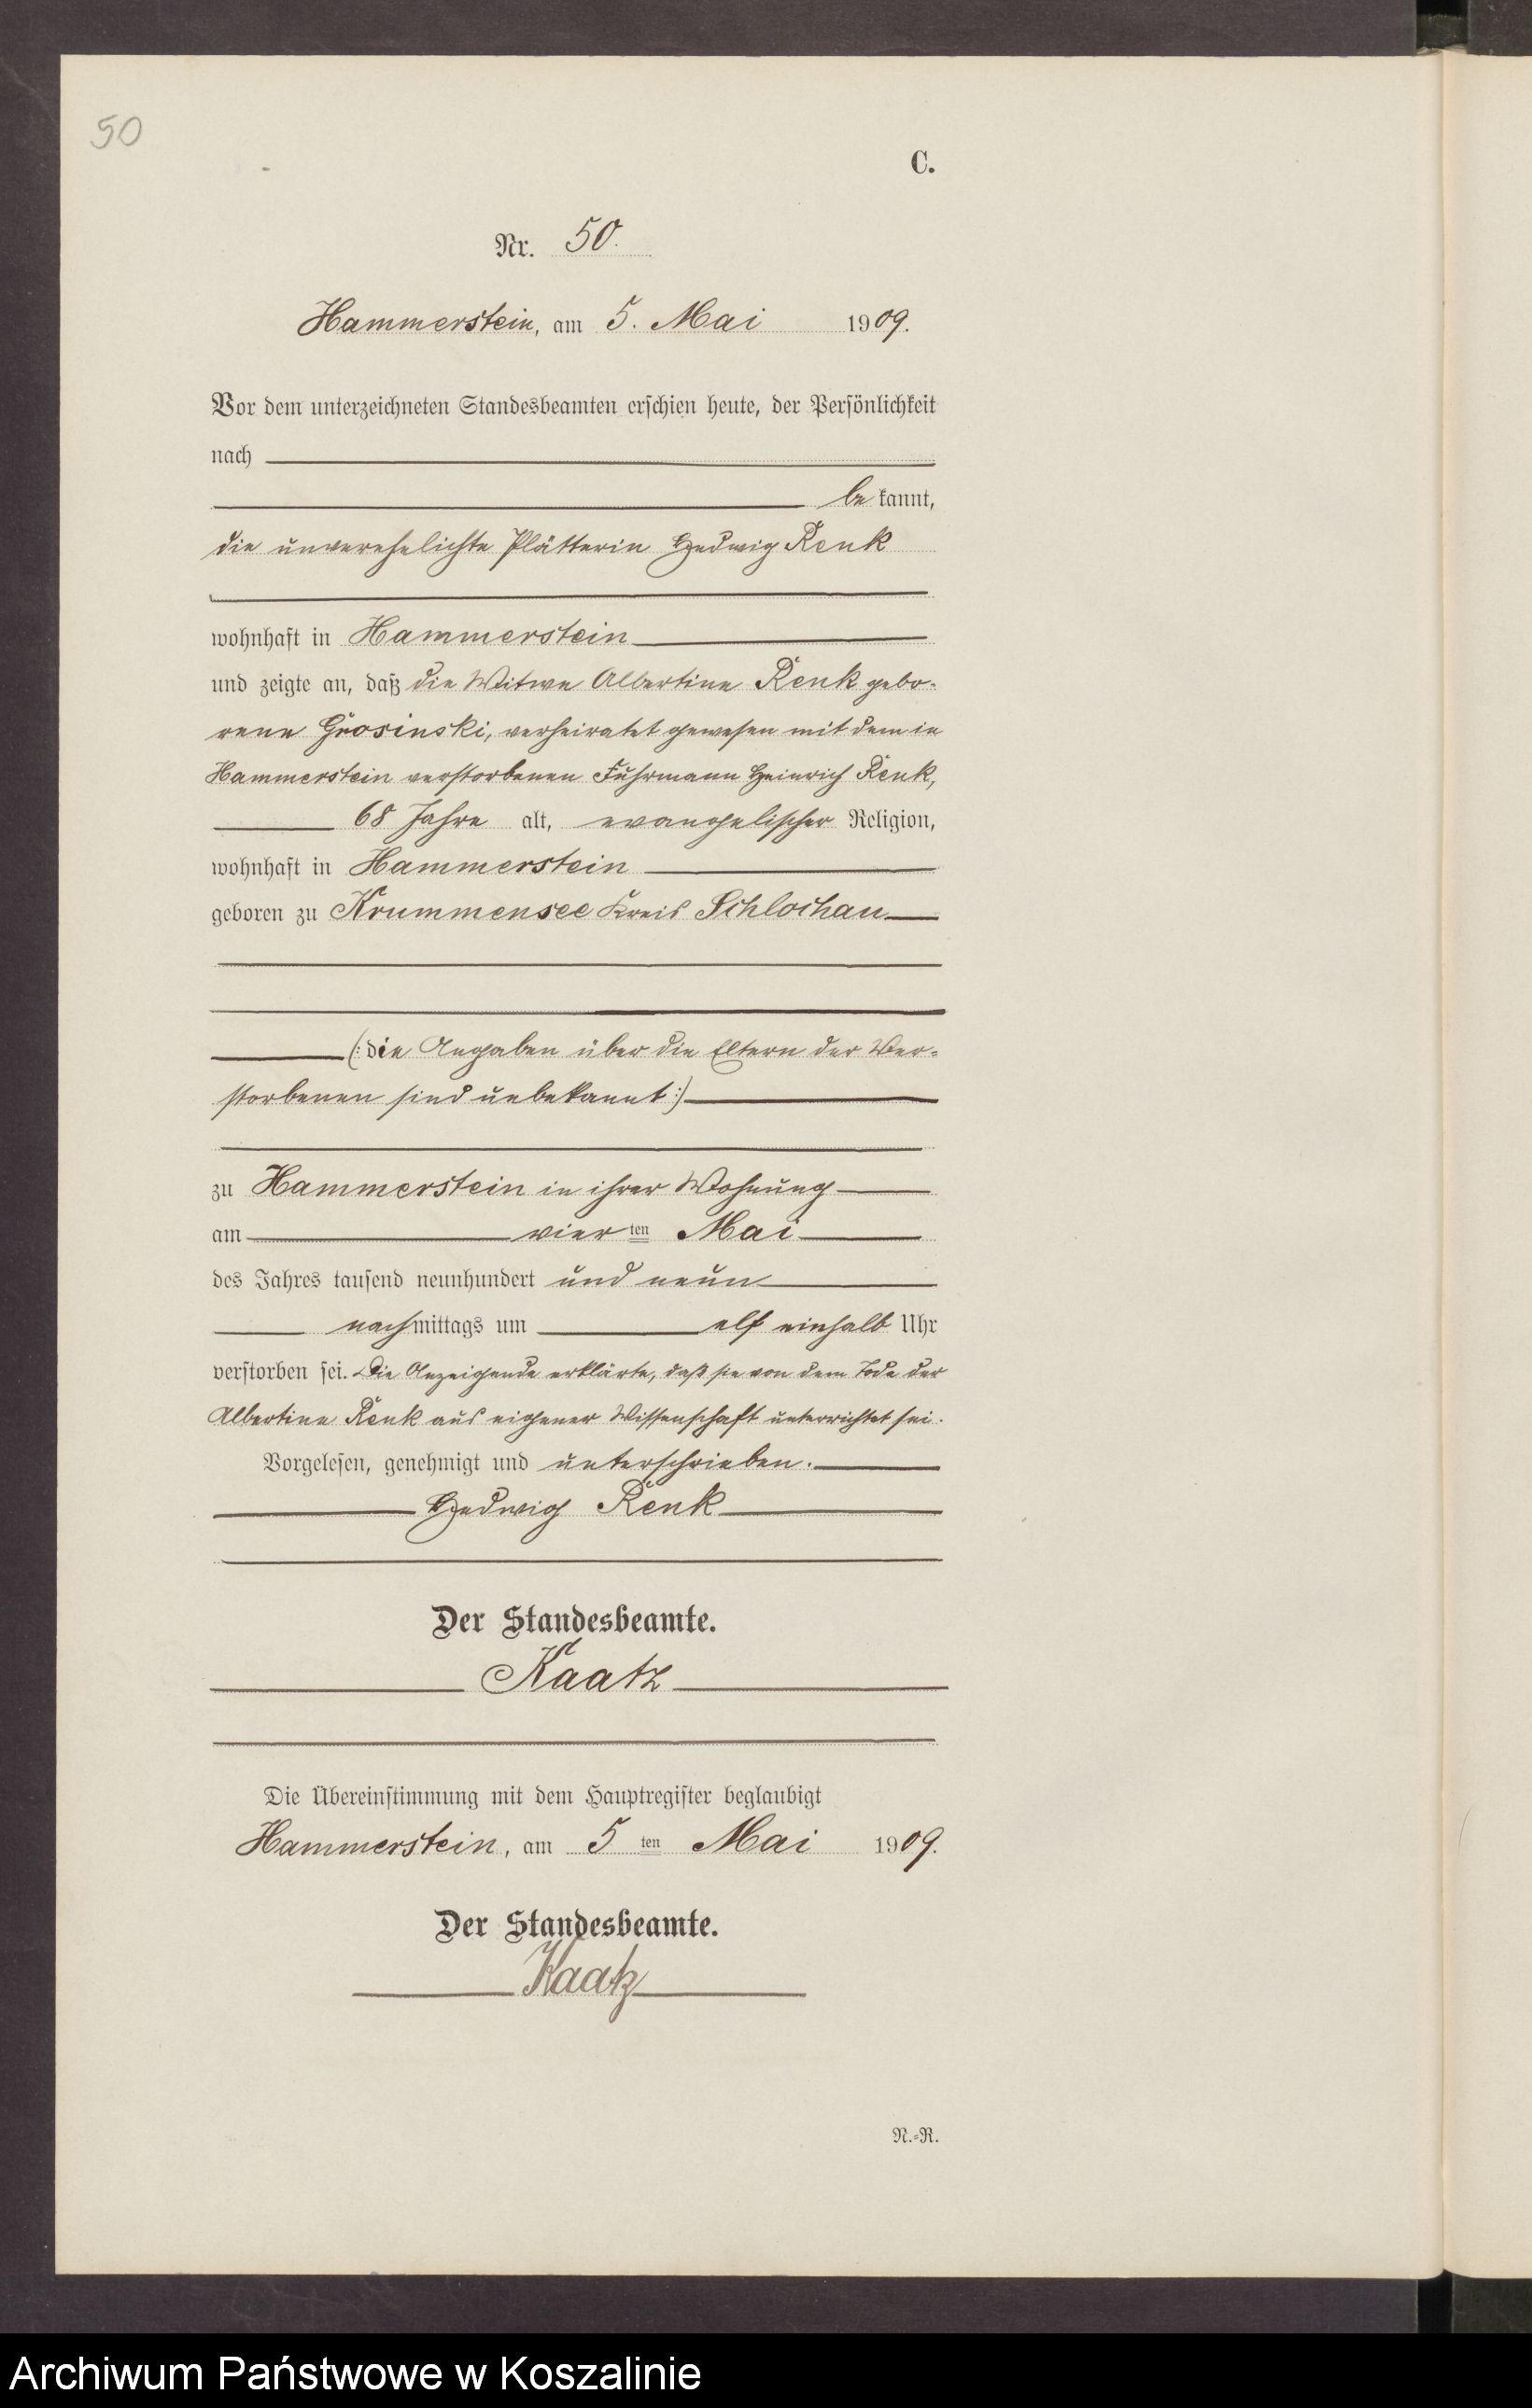 50
C.
Nr. 50.
Hammerstein, am 5. Mai 1909.
Vor dem unterzeichneten Standesbeamten erschien heute, der Persönlichkeit
nach
bekannt,
die unverehelichte Plätterin Hedwig Renk
wohnhaft in Hammerstein
und zeigte an, daß die Witwe Albertine Renk gebo-
rene Grosinski, verheiratet gewesen mit dem in
Hammerstein verstorbenen Fuhrmann Heinrich Renk,
68 Jahre alt, evangelischer Religion,
wohnhaft in Hammerstein
geboren zu Krummensee Kreis Schlochau
(: die Angaben über die Eltern der Ver-
storbenen sind unbekannt :)
zu Hammerstein in ihrer Wohnung
am vierten Mai
des Jahres tausend neunhundert und neun
nachmittags um elf einhalb Uhr
verstorben sei. Die Anzeigende erklärte, daß sie von dem Tode der
Albertine Renk aus eigener Wissenschaft unterrichtet sei.
Vorgelesen, genehmigt und unterschrieben.
Hedwig Renk
Der Standesbeamte.
Kaatz
Die Übereinstimmung mit dem Hauptregister beglaubigt
Hammerstein, am 5ten Mai 1909.
Der Standesbeamte.
Kaatz
N.-R.
Archiwum Państwowe w Koszalinie